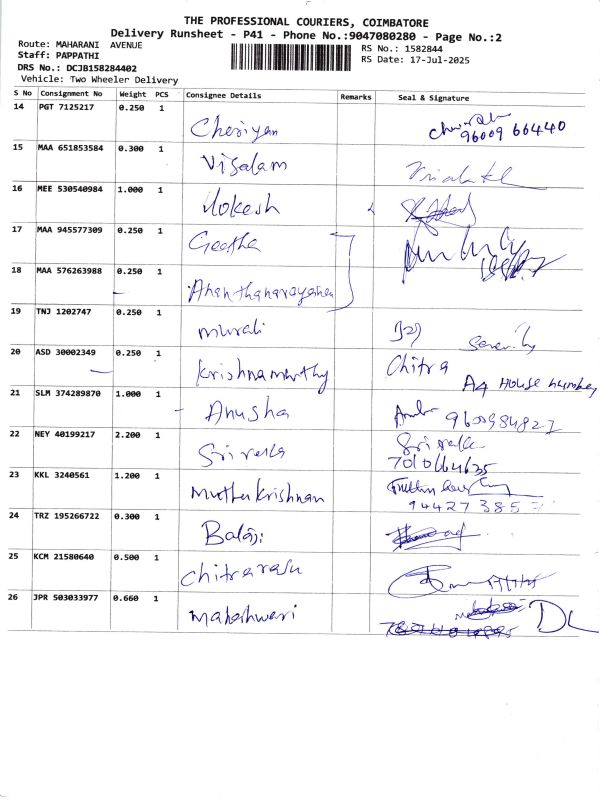 THE PROFESSIONAL COURIERS, COIMBATORE
Delivery Runsheet - P41 - Phone No.:9047080280 - Page No.:2
Route: MAHARANI AVENUE
RS No.: 1582844
Staff: PAPPATHI
RS Date: 17-Jul-2025
DRS No.: DCJB158284402
Vehicle: Two Wheeler Delivery
S No Consignment No Weight PCS Consignee Details Remarks Seal & Signature
14 PGT 7125217 0.250 1 Cheriyan
96009 66440
15 MAA 651853584 0.300 1 Visalam
16 MEE 530540984 1.000 1 Lokesh
17 MAA 945577309 0.250 1 Geetha
18 MAA 576263988 0.250 1 Ananthanarayanan
19 TNJ 1202747 0.250 1 murali
20 ASD 30002349 0.250 1 Krishnamurthy Chitra
A4 House
21 SLM 374289870 1.000 1 Anusha
22 NEY 40199217 2.200 1
23 KKL 3240561 1.200 1 Muthukrishnan
24 TRZ 195266722 0.300 1 Balaji
25 KCM 21580640 0.500 1 Chitrarasu
26 JPR 503033977 0.660 1 Maheshwari DL